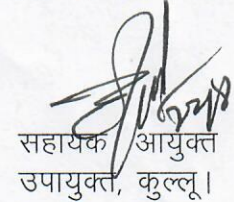 सहायक आयुक्त
उपायुक्त, कुल्लू।